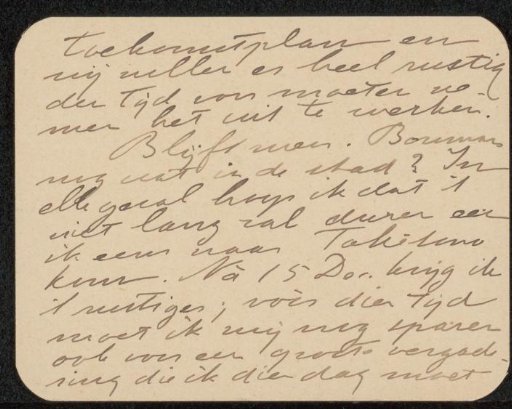 toekomstplan en
wij willen er heel rustig
den tijd voor moeten ne-
men het uit te werken.
Blijft mevr. Bouman
nog wat in de stad? In
elk geval hoop ik dat 't
niet lang zal duren eer
ik eens naar
kom. Nà 15 Dec. krijg ik
't rustiger; vóór dien tijd
moet ik mij nog sparen
ook voor een groote vergade-
ring die ik dien dag moet